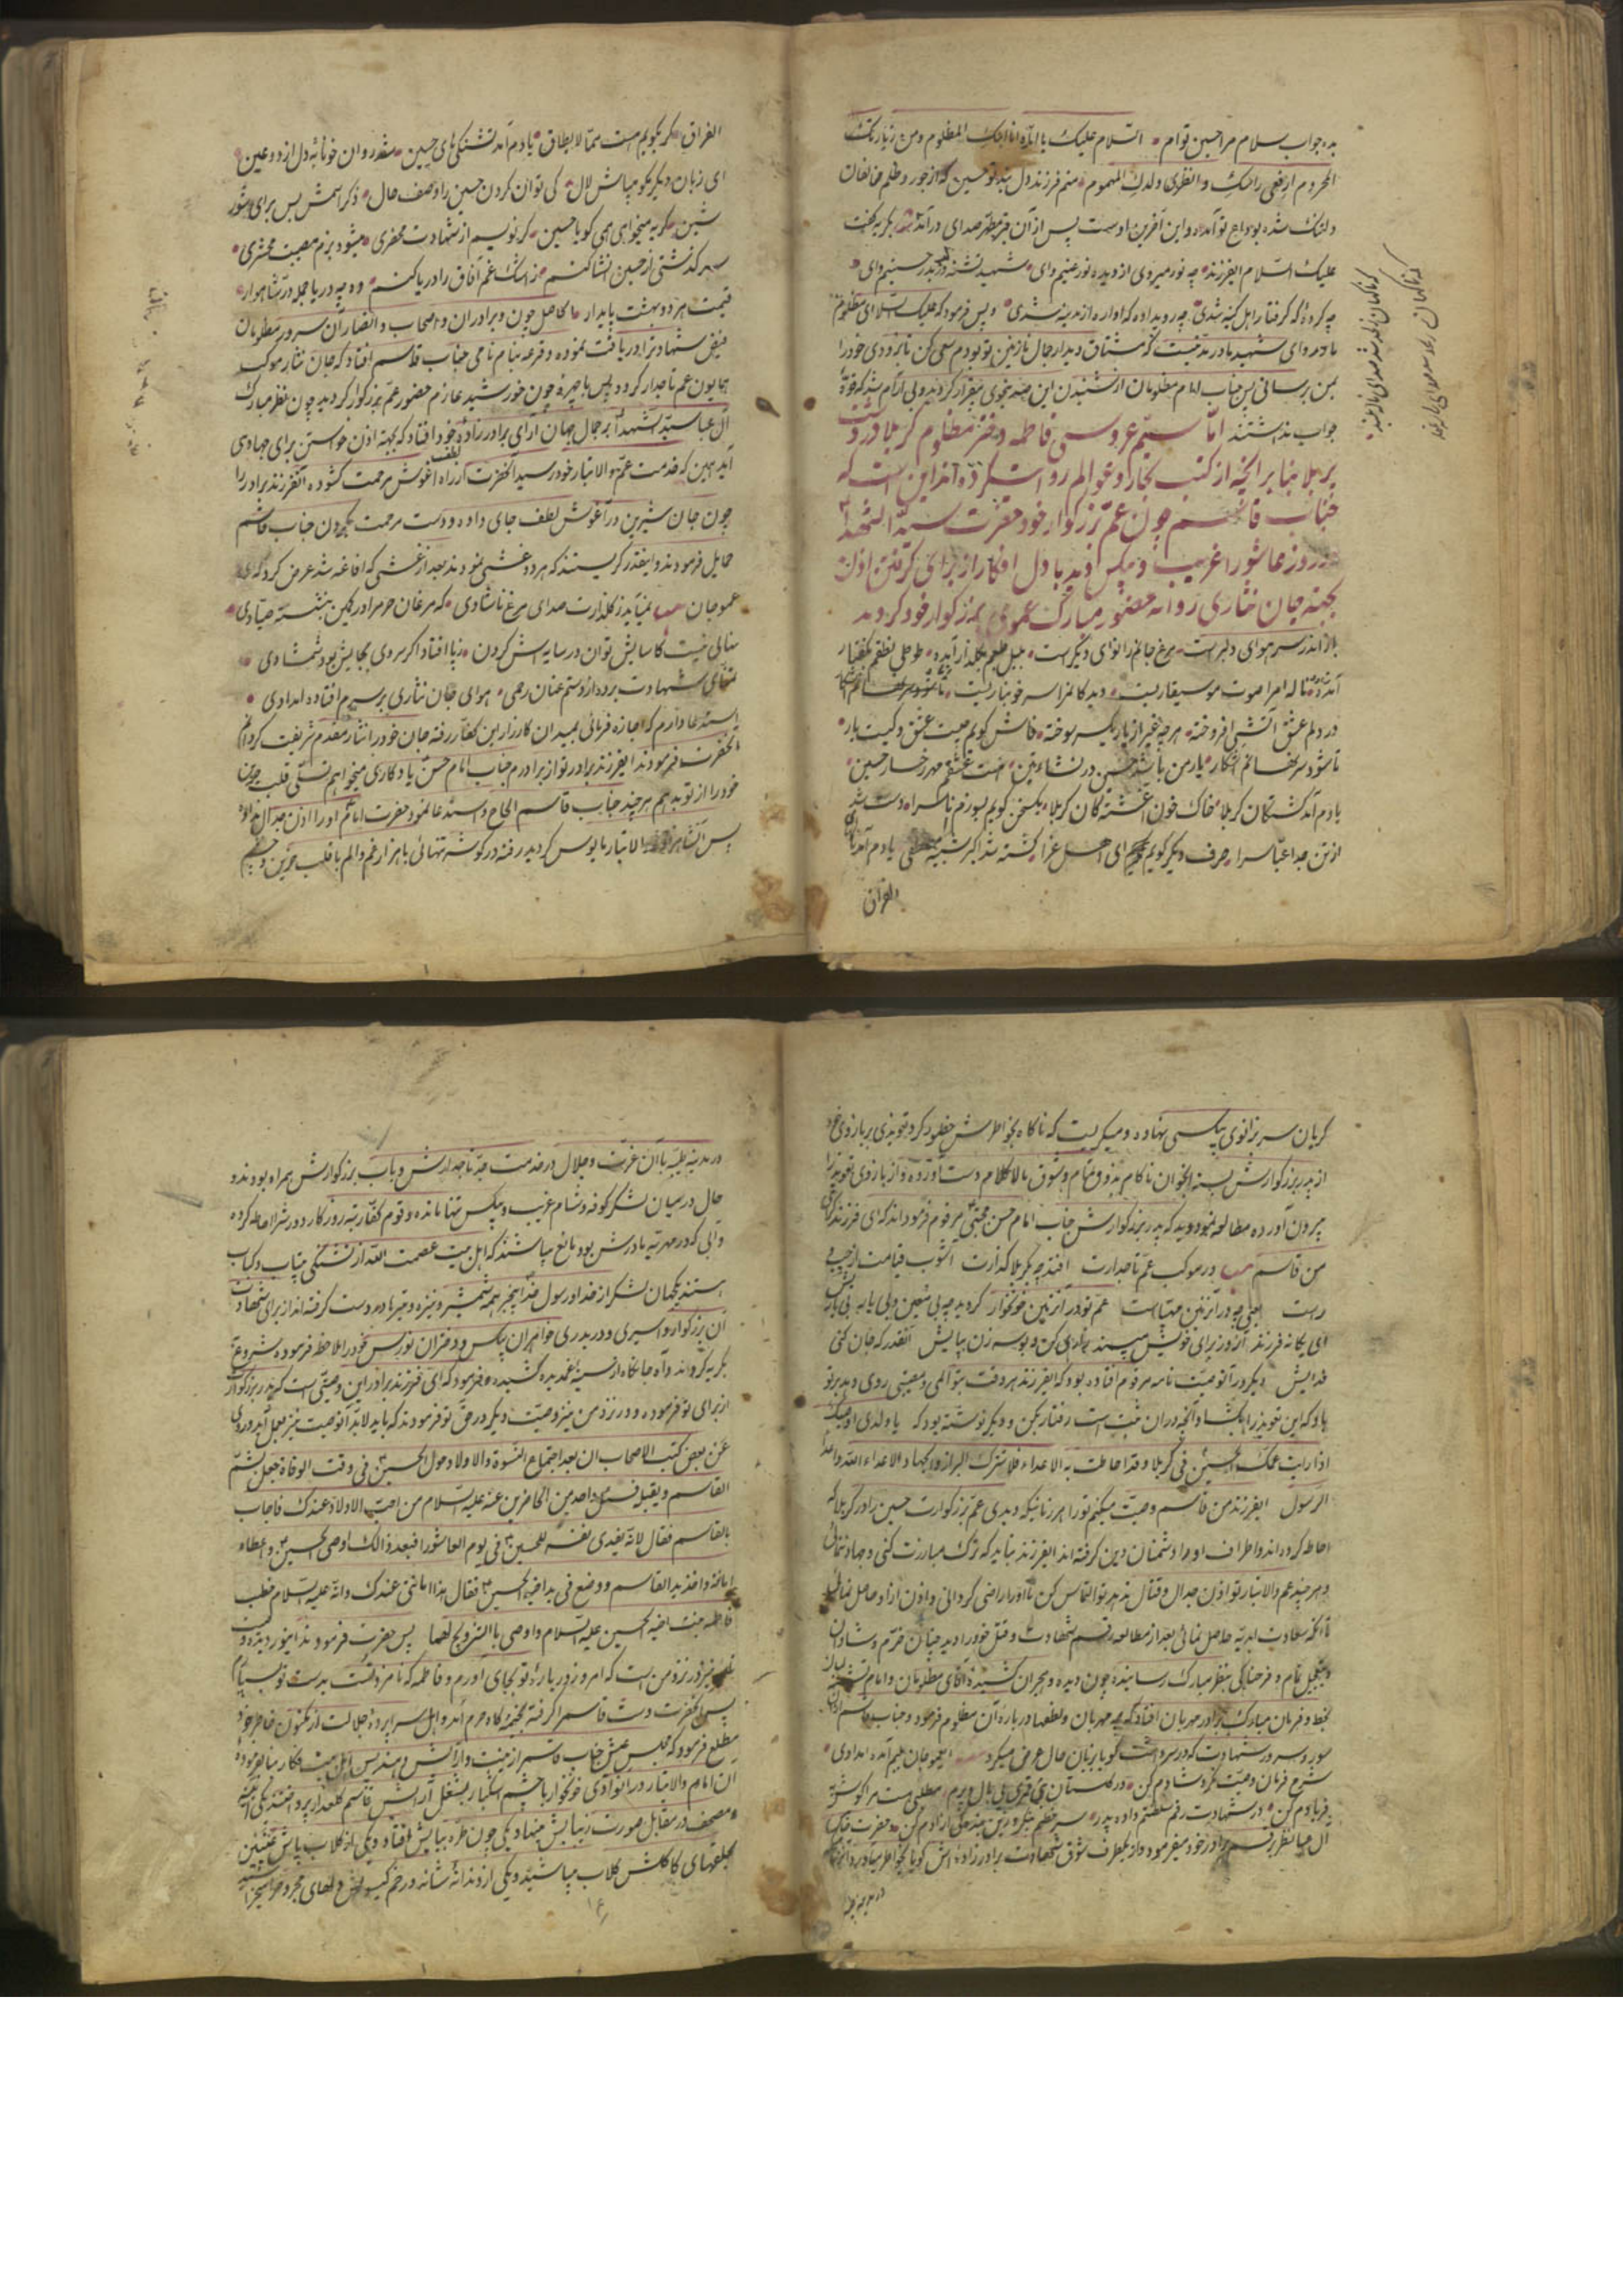 بده جواب سلام مرا حسین توام السلام علیک یا اماه انا ابنک المظلوم ومن زیارتک
المحروم ارفعی راسک وانظری ولدک المهموم منم فرزند دل بند تو حسین که از جور و ظلم مخالفان
دلتنک شده بوداع تو آمده و این آخرین اوست پس از آن قبر مطهر صدای درآمد بکریه کفت
علیک السلام ایفرزند چه نور میروی از دیده نور عینم وای شهید تشنه حسینم وای
چه کرده که کرفتار اهل کینه شدی چه رویداده که اواره از مدینه شدی و پس فرمود که علیک السلام ای مظلوم
مادر وای شهید مادر مدتیست که مشتاق دیدار جمال نازنین تو بودم سعی کن تا بزودی خود را
بمن برسانی پس جناب امام مظلومان از شنیدن این بیقرار کردید
جواب نداشتند اما سیم عروسی فاطمه دختر مظلوم کربلا در دشت
پر بلا بنا بر آنچه از کتب بحار و عوالم روایت کرده اند این است که
جناب قاسم چون عم بزرکوار خود حضرت سید الشهدا
در روز عاشورا غریب و بیکس دید با دل افکار از برای کرفتن اذن
بجهته جان نثاری روانه حضور مبارک عموی بزرکوار خود کردید
باز اندر سر هوای دلبر است مرغ جانم را نوای دیکر است بلبل طبعم بکلزار آمده طوطی نطقم بکفتار
آمده ناله ام را صوت موسیقاریست دیده کانم را سر خونباریست
در دلم عشق آتشی افروخته هرچه غیر از یار یکسر سوخته فاش کویم چیست عشق و کیست یار
تا شود سر نهانم آشکار یار من باشد حسین در نشاءتین هست عشقم مهر رخسار حسین
یادم آمد کشتکان کربلا خاک خون آغشته کان کربلا یک سخن کویم بسوزم ناکسرا دست شد
از تن جدا عباسرا حرف دیکر کویم ای اهل عزا کشته شد اکبر شبیه مصطفی یادم آمد
الفراق
الفراق کر بکویم هست مما لا یطاق یادم آمد تشنکی های حسین شد روان خونابه دل از دو عین
ای زبان دیکر مکو میباش لال کی توان کردن حسین را وصف حال ذکر اسمش بس برای شور
شین کریه میخواهی همی کو یا حسین کر نویسم از شهادت محضری میشود بزم مصیبت محشری
سرکذشتی از حسین انشا کنم ز اشک غم آفاق را دریا کنم وه چه دریا جمله در شاهوار
قیمت هر در بهشت پایدار حاصل چون برادران و اصحاب و انصار آن سرور مظلومان
فیض شهادترا دریافت نموده و قرعه بنام نامی جناب قاسم افتاد که جان نثار موکب
همایون عم تاجدار کردد پس با چهره چون خورشید عازم حضور عم بزرکوار کردید چون نظر مبارک
آن جناب سید الشهدا بر جمال جهان آرای برادرزاده خود افتاد که بجهته اذن خواستن برای جهاد می
آید همین که خدمت عم والاتبار خود رسید آنحضرت از راه لطف آغوش مرحمت کشوده آنفرزند برادر را
چون جان شیرین در آغوش لطف جای داده و دست مرحمت بکردن جناب قاسم
حمایل فرمودند و اینقدر کریستند که هر دو غشی نمودند بعد از غشی که افاقه شد عرض کرد که ای
عموجان نمیآید ز کلذارت صدای مرغ ناشادی که مرغان حرم را در کمین بنشسته صیادی
نهالی نیست کاسایش توان در سایه اش کردن ز پا افتاد اکر سروی بجایش بود شمشادی
تمنای شهادت برده از دستم عنان رحمی هوای جان نثاری بر سرم افتاده امدادی
استدعا دارم که اجازه فرمائی بمیدان کارزار این کفار رفته جان خود را نثار مقدم شریفت کردانم
آنحضرت فرمودند ایفرزند برادر تو از برادرم جناب امام حسن یادکاری میخواهم تسلی قلب
خود را از تو بدهم هر چند جناب قاسم الحاح و استدعا نمود حضرت امام او را اذن جدال نداده
پس آنشاهزاده والاتبار مایوس کردید رفته در کوشه تنهائی با هزار غم و الم با قلب حزین و چشم
کریان سر بزانوی بیکسی نهاده و میکریست که ناکاه بخاطرش خطور کرد تعویذی بر بازوی خود
از پدر بزرکوارش بسته آنجوان ناکام بذوق تمام و شوق مالاکلام دست آورده و از بازوی تعویذ را
بیرون آورده مطالعه نمود دید که پدر بزرکوارش جناب امام حسن مجتبی مرقوم فرموداند که ای فرزند کرامی
من قاسم در موکب عم تاجدارت افتد چه بکربلا کذارت آشوب قیامت از چپ و
راست بینی چه در آنزمین مهیاست عم تو در آنزمین خونخوار کردید چه بی معین و بی یار
ای یکانه فرزند آنروز برای خویش مپسند یاری کن و بوسه زن بپایش آنقدر که جان کنی
فدایش دیکر در آنوصیت نامه مرقوم افتاده بود که ایفرزند هر وقت بتو المی و مصیبتی روی دهد بر تو
باد که این تعویذ را بکشا و آنچه در آن ثبت است رفتار بکن و دیکر نوشته بود که یا ولدی اوصیک
اذا رایت عمک الحسین فی کربلا وقد احاطت به الاعداء فلا تترک البراز والجهاد لاعداء الله واعداء
الرسول ایفرزند من قاسم وصیت میکنم تو را هر زمانیکه دیدی عم بزرکوارت حسین را در کربلا که
احاطه کرده اند و اطراف او را دشمنان دین کرفته اند ایفرزند نباید که ترک مبارزت کنی و جهاد ننمائی
و هر چند عم والاتبار تو اذن جدال و قتال ندهد تو التماس کن تا او را راضی کردانی و اذن از او حاصل نمائی
تا آنکه سعادت ابدیه حاصل نمائی بعد از مطالعه رقم شهادت و قتل خود را دید چنان خرم و شادان
بتعجیل تمام و فرحناکی بنظر مبارک رسانیده چون دیده هجران کشیده آقای مظلومان و امام تشنه لبان
بخط و فرمان مبارک برادر مهربان افتاد که مهربان و لطفها درباره آن مظلوم فرمود و جناب قاسم از آن
سور و سرور شهادت که در سر داشت کویا بزبان حال عرض میکرد ایعموجان بلبم آمده امدادی
شرح فرمان وصیت نکر و شادم کن در کلستان بی قمری بی بال و پرم مطلبی هست مرا کوش
بفریادم کن در شهادت رقم سلطنتم داده پدر سر خطم بنکر و بین بنده کی آزادم کن حضرت
آل عبا نظر برقم برادر خود میفرمود و از یکطرف شوق شهادت برادر زاده اش کویا بخاطر میاورد آنوقتیکه
در مدینه
در مدینه طیبه با آن عزت و جلال در خدمت جد تاجدارش و باب بزرکوارش همراه بودند و
حال در میان لشکر کوفه و شام غریب و بیکس تنها مانده و قوم کفار تبه روزکار دورشرا احاطه کرده
و آبی که در مهریه مادرش بود مانع میباشند که اهل بیت عصمت الله از تشنکی بیتاب و کباب
هستند یکجهان لشکر از خدا و رسول خدا بیخبر همه شمشیر و نیزه و تیر و تبر بدست کرفته اند از برای شهادت
آن بزرکوار و اسیری و دربدری خواهران بیکس و دختران نورس خود را ملاحظه فرموده شروع
بکریه کرداند و آه جانکاه از سینه غمدیده کشیده و فرمود که ای فرزند برادر این وصیتی است که پدر بزرکوارت
از برای تو فرموده و در نزد من نیز وصیت دیکر در حق تو فرمودند که باید لابد آنوصیت نیز بعمل آید در روی
عن بعض کتب الاصحاب ان بعد اجتماع النسوة والاولاد حول الحسن فی وقت الوفاة جعل یشم
القاسم ویقبل فسئل واحد من الحاضرین عنه علیه السلام من احب الاولاد عندک فاجاب
بالقاسم فقال لانه یفدی نفسه للحسین فی یوم العاشورا فبعد ذالک اوصی الحسین واعطاه
امانة واخذ ید القاسم ووضع فی ید اخیه الحسین فقال هذا امانتی عندک وانه علیه السلام خطب
فاطمه بنت اخیه الحسین علیه السلام واوصی بالتزویج لهما پس حضرت فرمودند ای نور دیده
نیز در نزد من است که امروز درباره تو بجای آورم و فاطمه که نامزد تست بدست تو بسپارم
پس آنحضرت دست قاسم را کرفته بخیمه کاه حرم آمد و اهل سراپرده جلالت از مکنون خاطر خود
مطلع فرمود که مجلس عیش جناب قاسم از زینت و آرایش
آن امام والاتبار در آنوادی خونخوار با چشم اشکبار بشغل آرایش قاسم کلعذار پرداختند یکی آینه
و مصحف در مقابل صورت زیبایش مینهاد یکی چون طره بپایش افتاد و یکی از کلاب پاش عنبرین
بحلقهای کاکلش کلاب میپاشید و یکی از دندانه شانه در خم کیسو